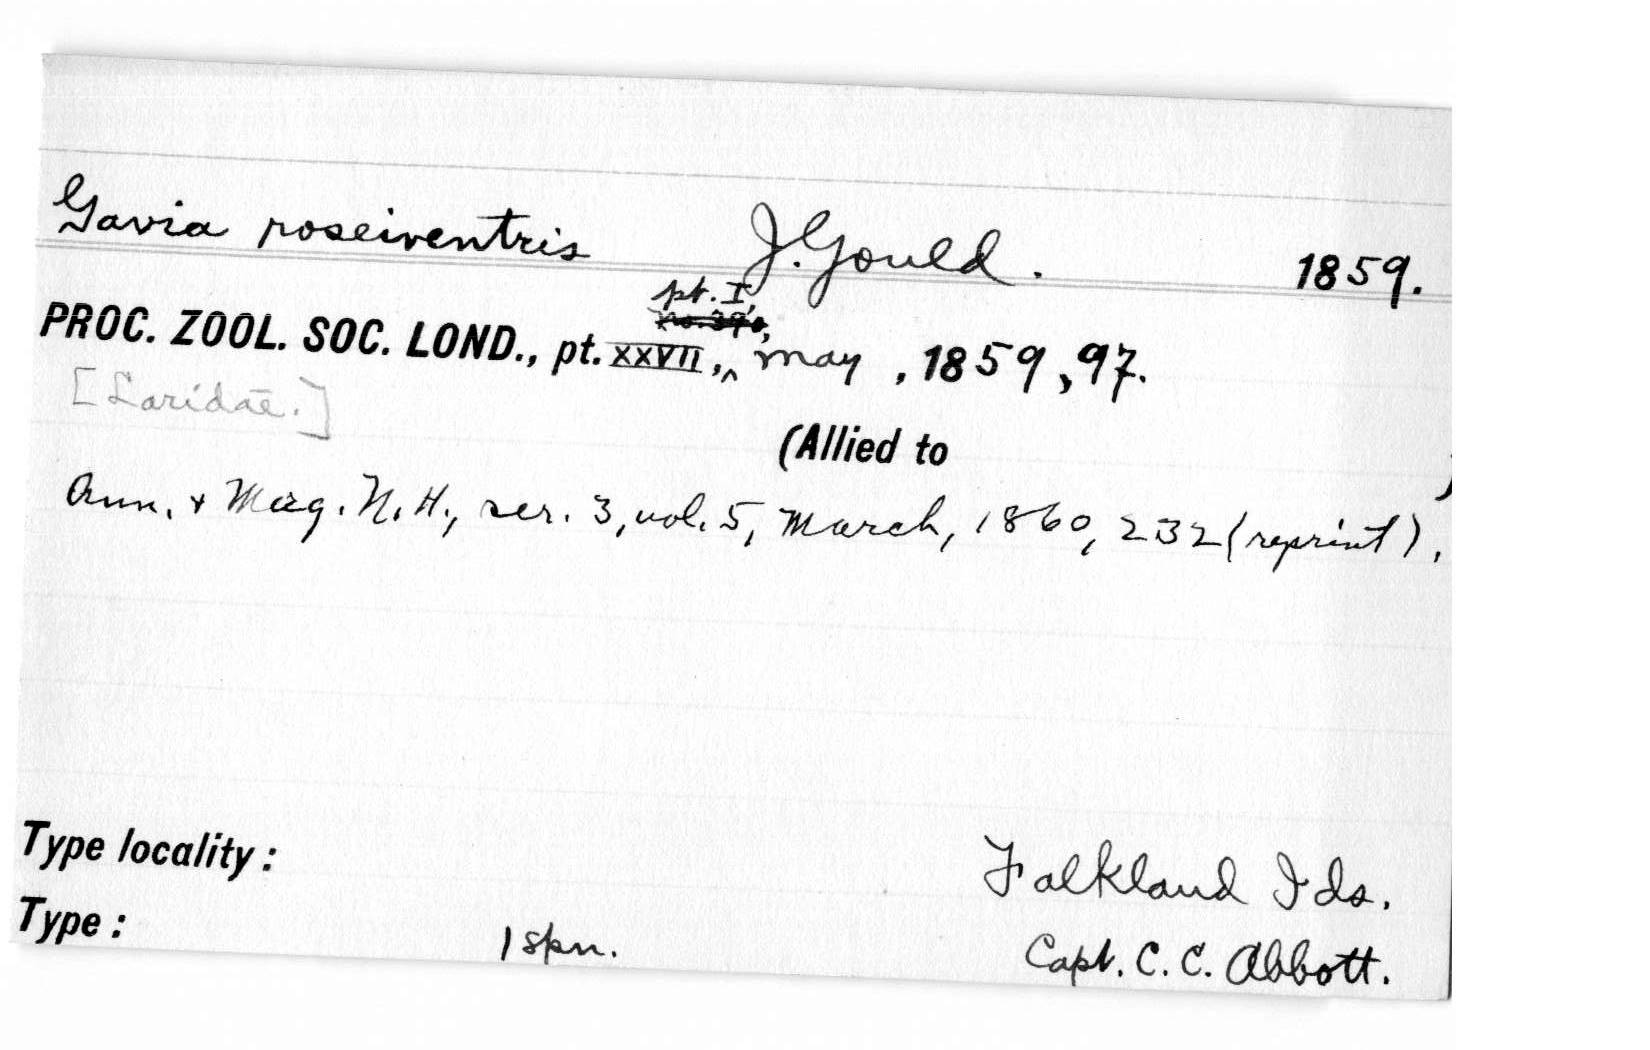 Gavia roseiventris J. Gould. 1859.
pt. I,
PROC. ZOOL. SOC. LOND., pt. XXVII, ^ May, 1859, 97.
[Laridae.]
(Allied to )
Ann. & Mag. N. H., ser. 3, vol. 5, March, 1860, 232 (reprint).
Type locality: Falkland Ids.
Type: 1 spn. Capt. C. C. Abbott.